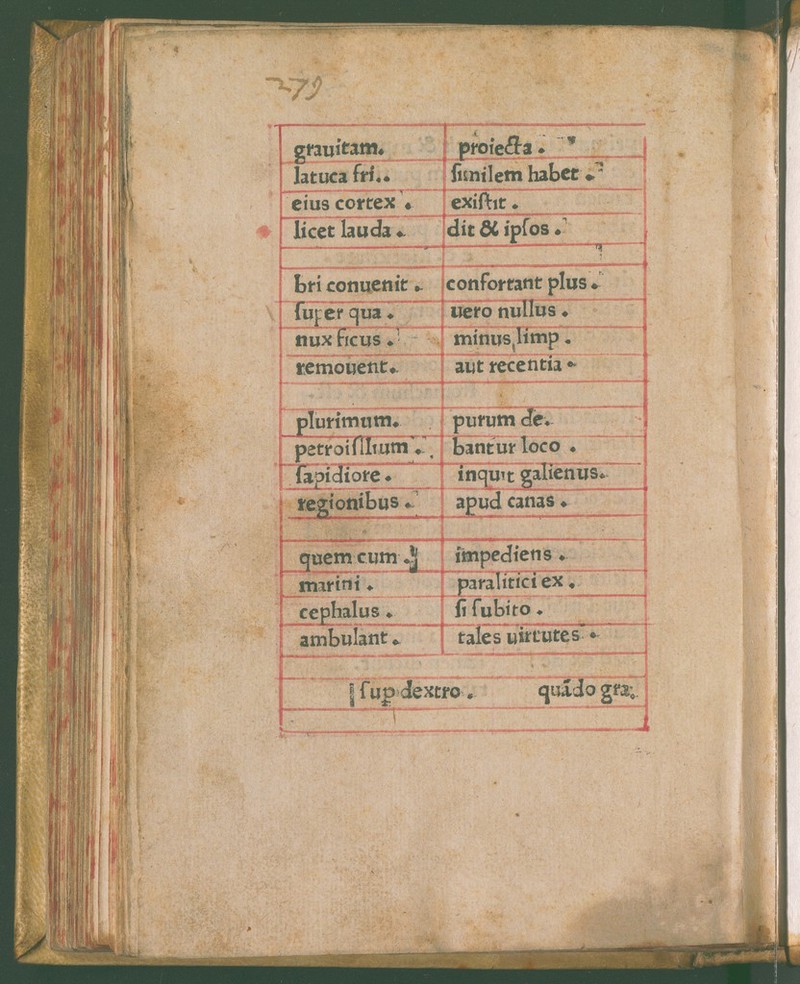 279
grauitam. proiecta .
latuca fri.. similem habet .
eius cortex . existit .
licet lauda . dit & ipsos .
bri conuenit . confortant plus .
super qua . uero nullus .
nux ficus . minus limp .
remouent. aut recentia .
plurimum. purum de.
petroisillum . bantur loco .
sapidiore . inquit galienus.
regionibus . apud canas .
quem cum . impediens .
marini . paralitici ex .
cephalus . si subito .
ambulant . tales uirtutes .
sup dextro . quãdo gra